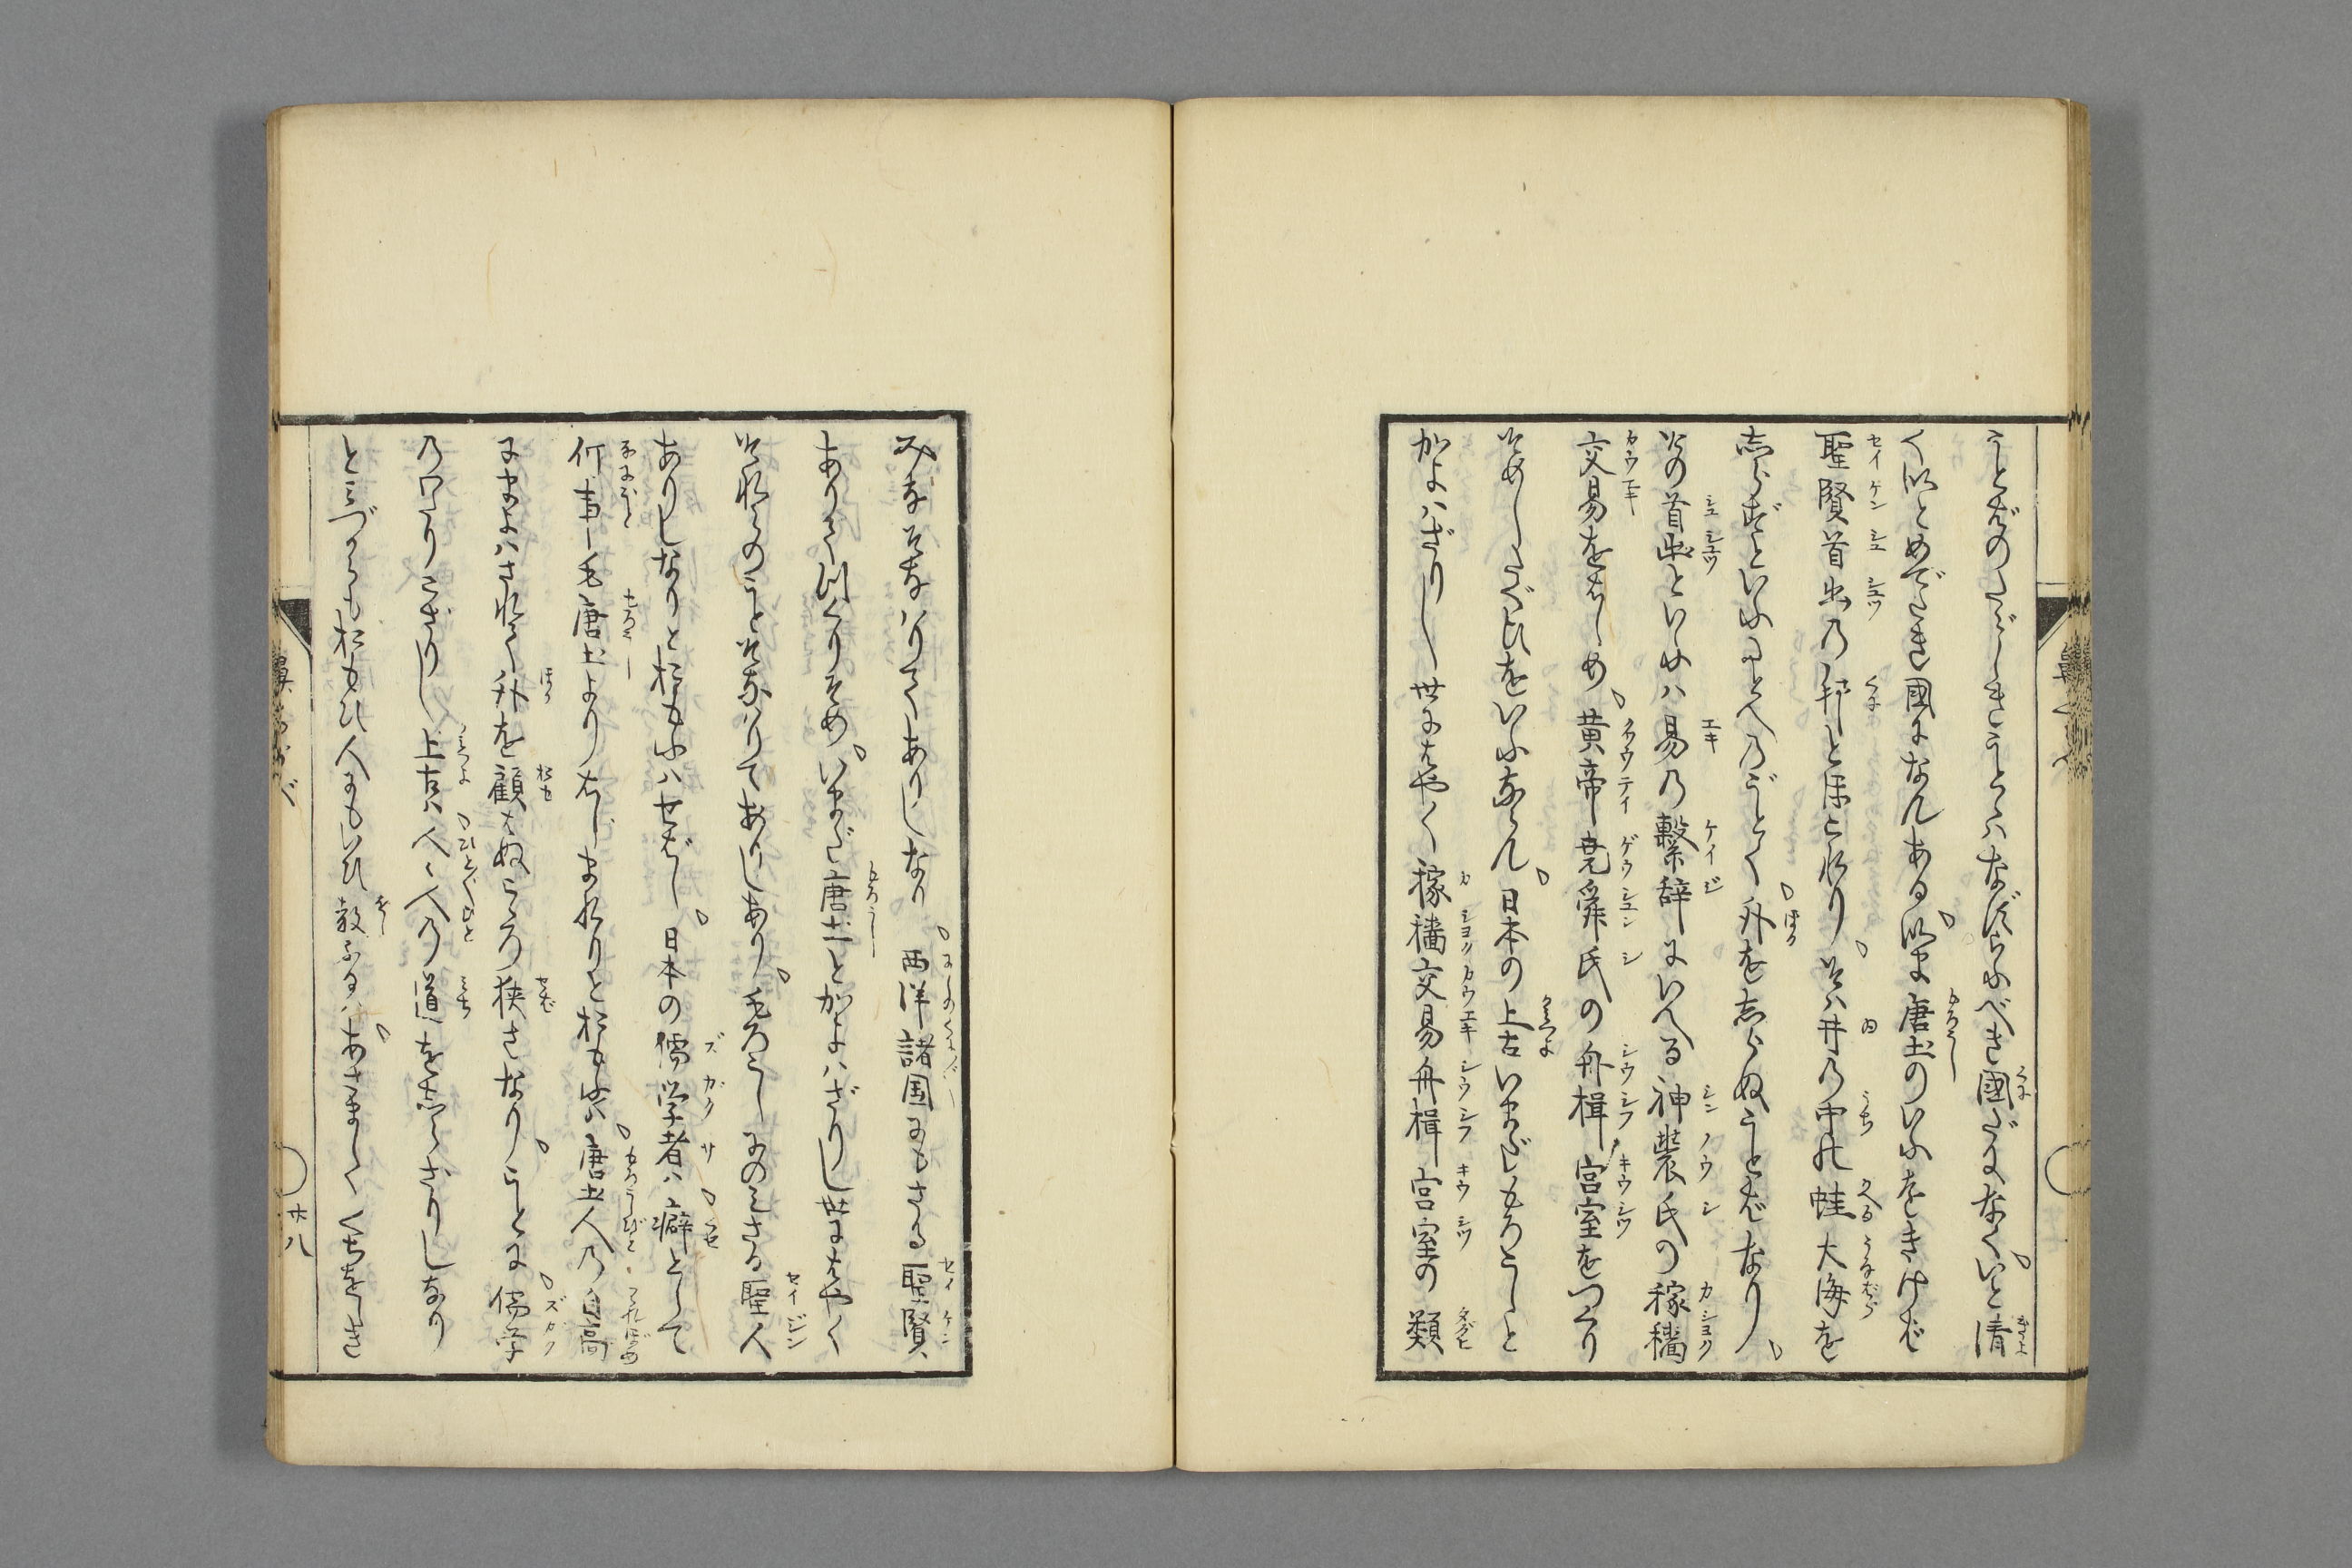 うとバのたゞしきうとハなずらふべき國だになくいと清
く似とめでたき國になんある似ま唐土のいふをきけバ
聖賢首出乃邦とほこれりそハ井の中の蛙大海を
志らずといふたとへのごとく外を志らぬうとバなり
その首出といへハ易の繫辞にいへる神農氏の稼穡
交易をはしめ黄帝堯舜氏の舟楫宮室をつくり
そめしたぐひをいふならん日本の上古いまだもろこしと
かよハざりし世にはやく稼穡交易舟楫宮室の類
みなそなハりてありしなり西洋諸国にもさる聖賢
ありてつくりそめいまだ唐土とかよハざりし世にはやく
それらのうとそなハりてありしありもろこしにのみさる聖人
ありしなりとおもふハせばし日本の儒学者ハ癖として
何事も唐土よりはじまれりとおもふハ唐土人の自高
にまよハされて外を顧はぬこころ狭きなりうとに儒学
のわたりこざりし上古ハ人〻人の道を志らざりしなり
とみづからもおもひ人にもいひ教ふるハあさましくくちをしき
廿八